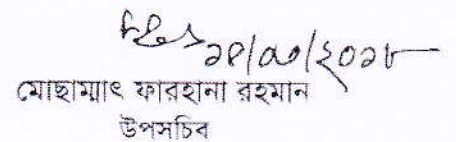 ১৪/০৩/২০১৮
মোছাম্মাৎ ফারহানা রহমান
উপসচিব